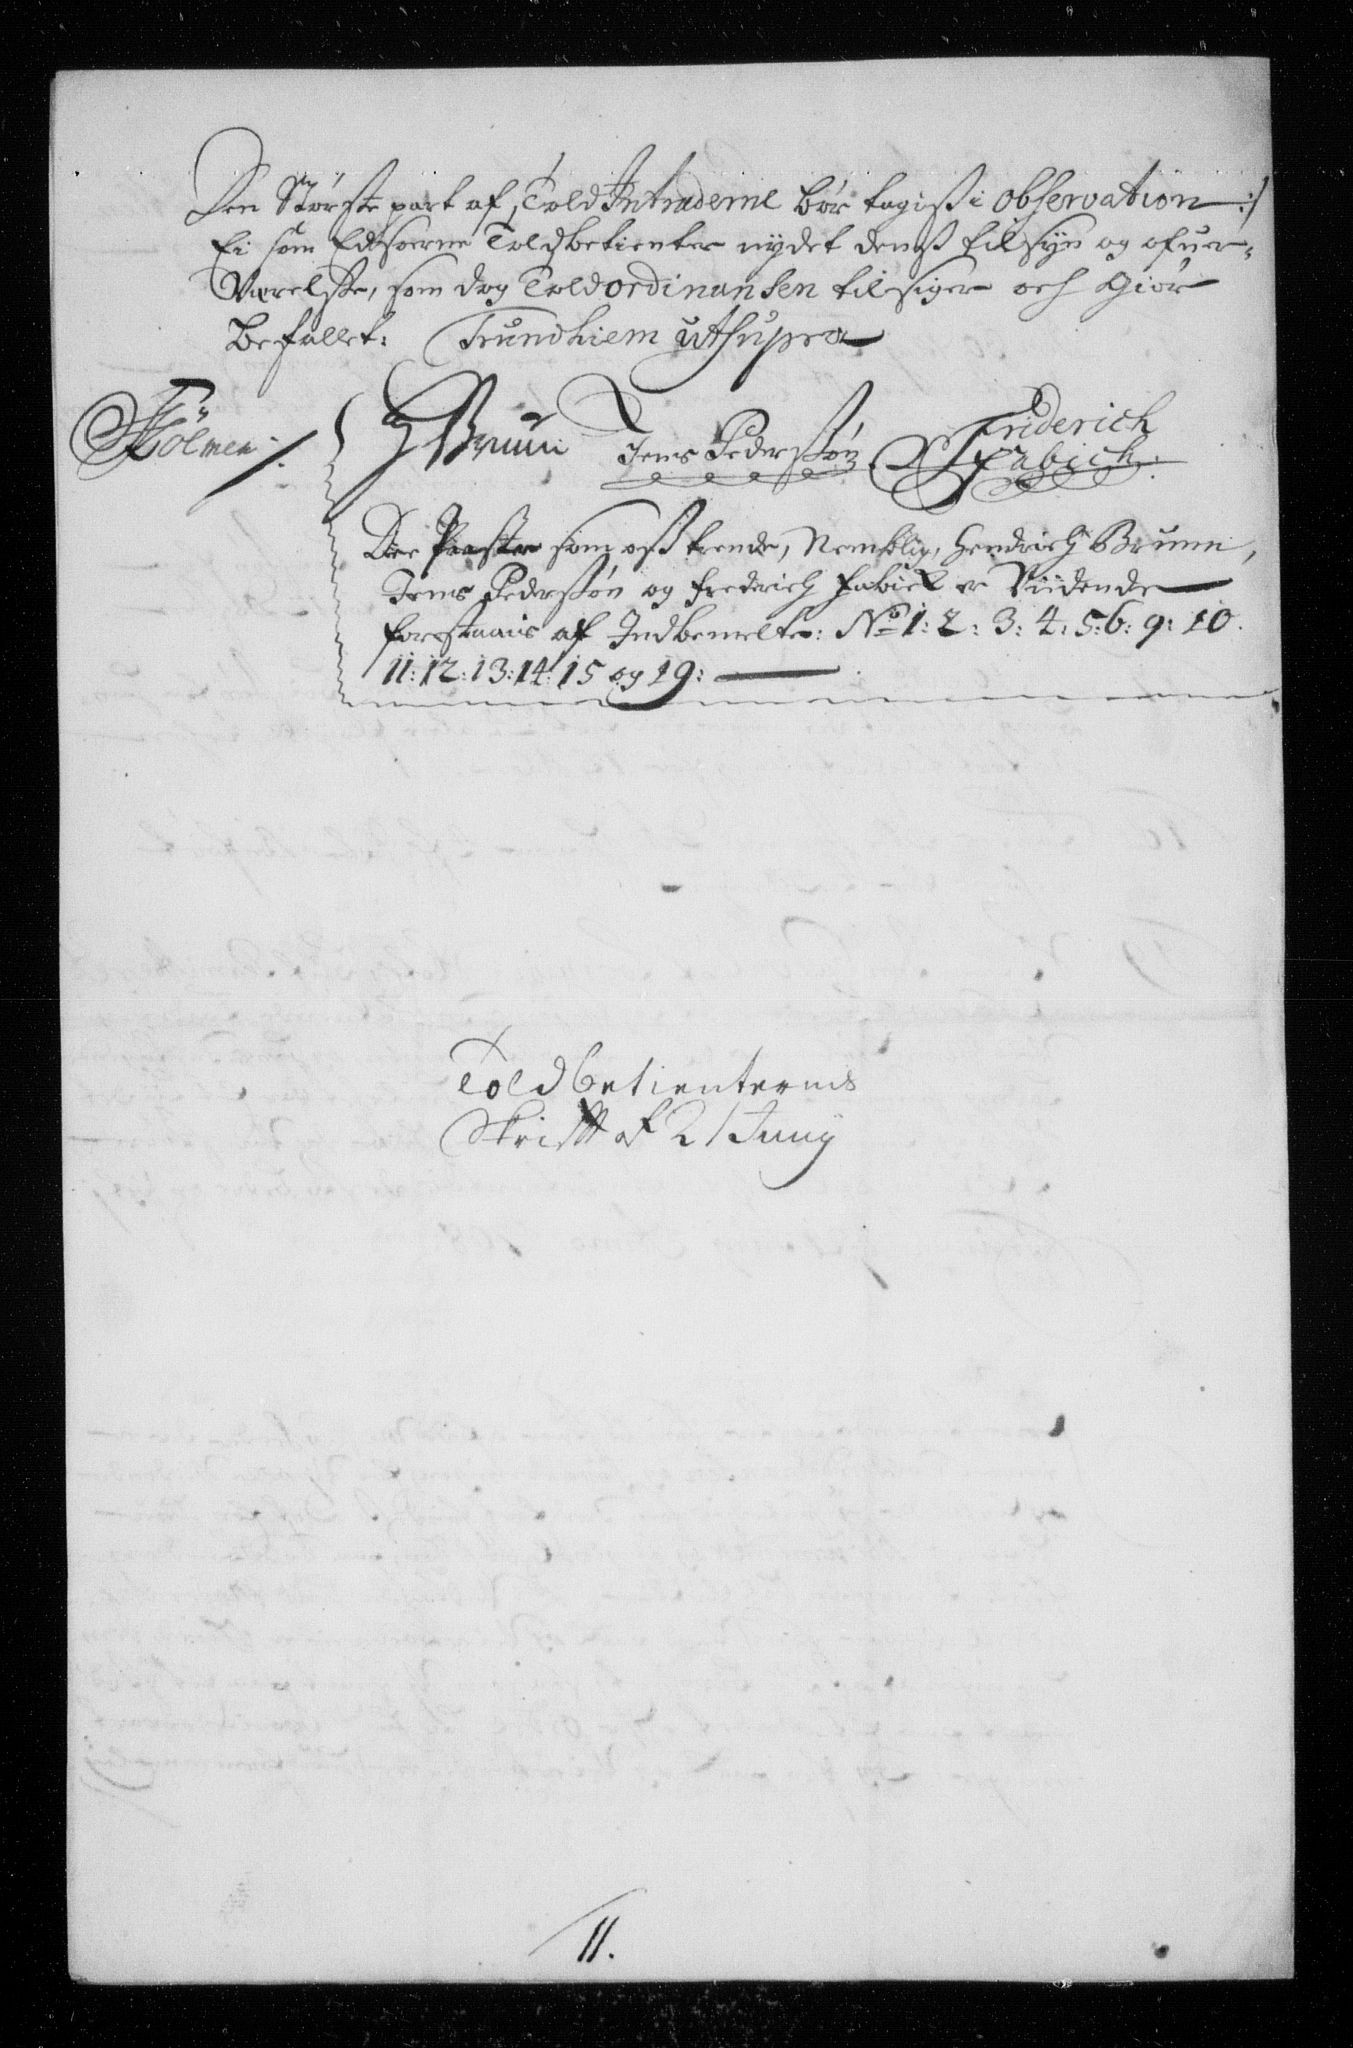 Den Störste part af Told Intraderne bör tagiss i observation :/
Ei som Edsorne Toldbetienter nydet denss tilsyn og ofuer-
Værelsse, som dog Told ordinansen tilsiger och Giör
befallet: Trundhiem ut supra
Holmen /:
H Bruun Jens Pederssön Friderich
Fabich:
Die Poster som oss trende, Nemblig, Hendrich Bruun,
Jens Pederssön og Frederich Fabich er Viidende
forestaais af Indbemelte: No 1: 2: 3: 4: 5: 6: 9: 10:
11: 12: 13: 14: 15 og 19:
Toldbetienternis
Skrifft af 21 Juny
11.